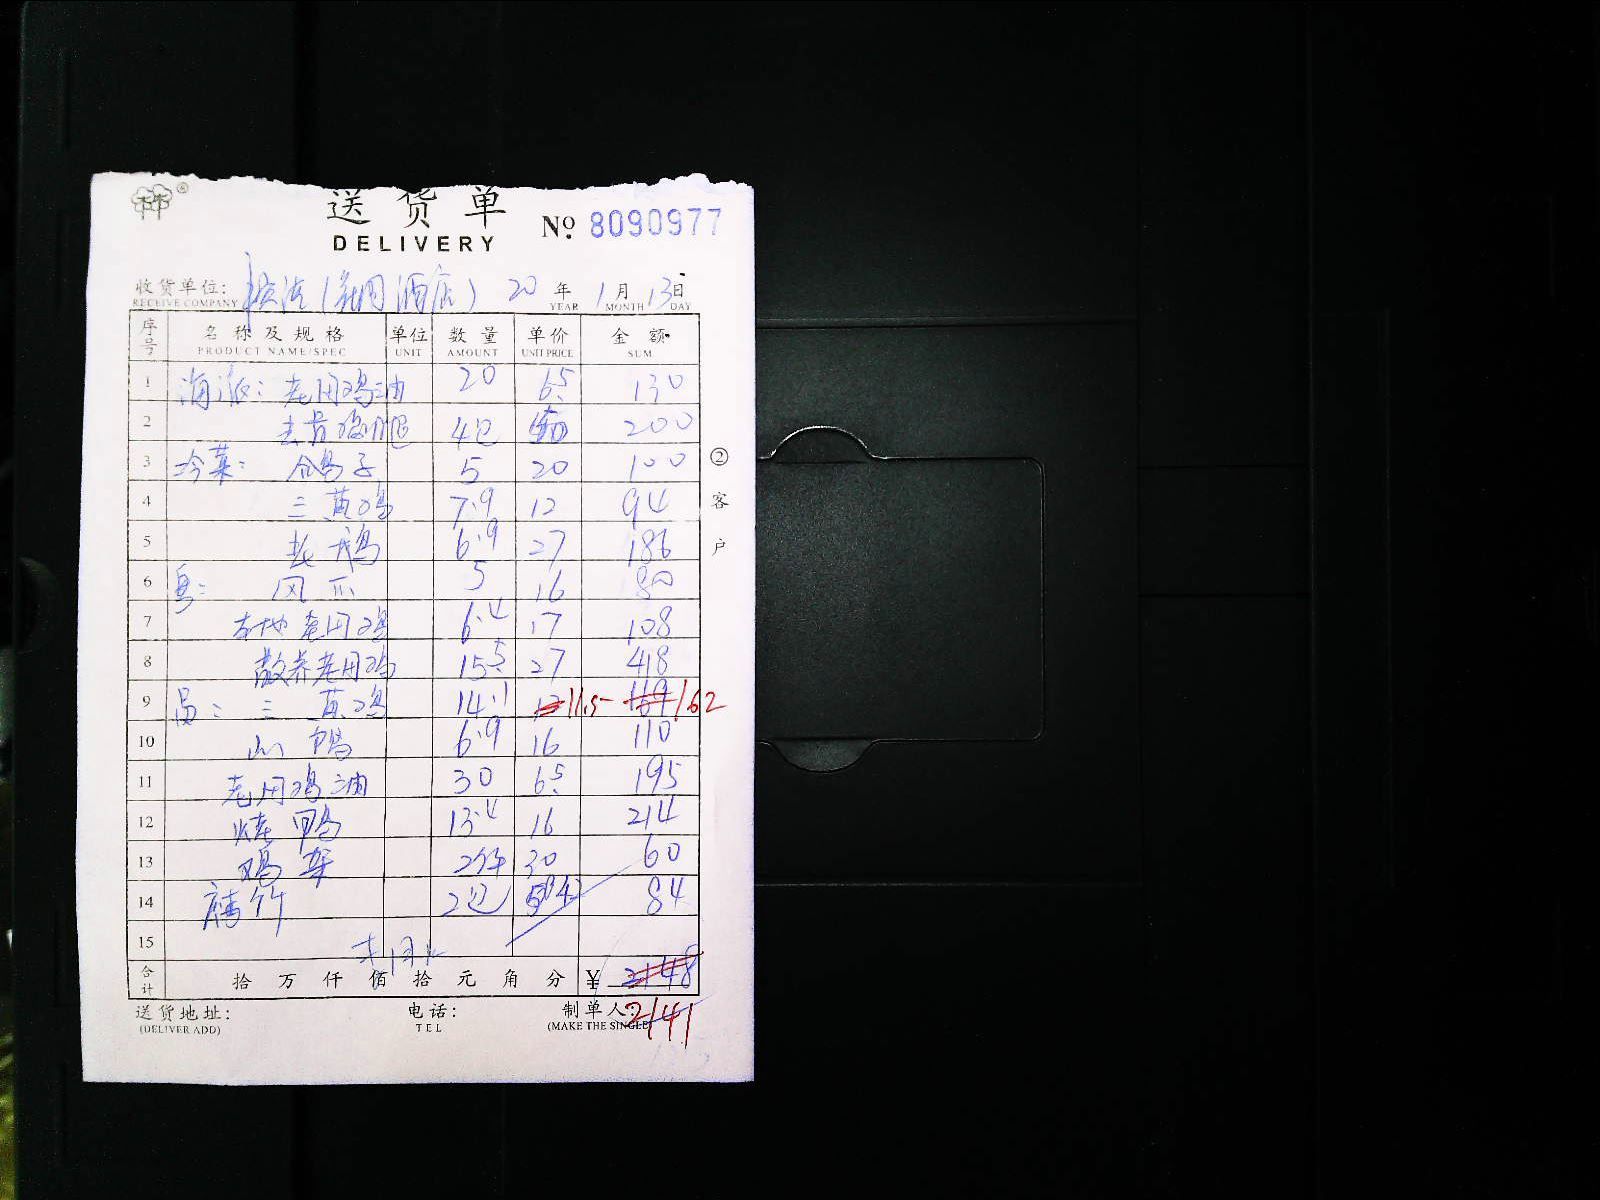 送货单
DELIVERY
№ 8090977
收货单位: (酒店) 20 年 1 月 13 日
RECEIVE COMPANY YEAR MONTH DAY
序号 名称及规格 单位 数量 单价 金额
PRODUCT NAME/SPEC UNIT AMOUNT UNIT PRICE SUM
1 海派: 老母鸡油 20 6.5 130
2 去骨鸡腿 4包 200
3 冷菜: 鸽子 5 20 100
4 三黄鸡 7.9 12 94
5 老鹅 6.9 27 186
6 凤爪 5 16 80
7 本地老母鸡 6.4 17 108
8 散养老母鸡 15.5 27 418
9 三黄鸡 14.1 12 11.5 169 162
10 鸭 6.9 16 110
11 老母鸡油 30 6.5 195
12 烤鸭 13.4 16 214
13 鸡 2件 30 60
14 腐竹 2包 42 84
15
合计 拾 万 仟 佰 拾 元 角 分 ¥ 2148
2141
送货地址: 电话: 制单人:
(DELIVER ADD) TEL (MAKE THE SINGLE)
②客户